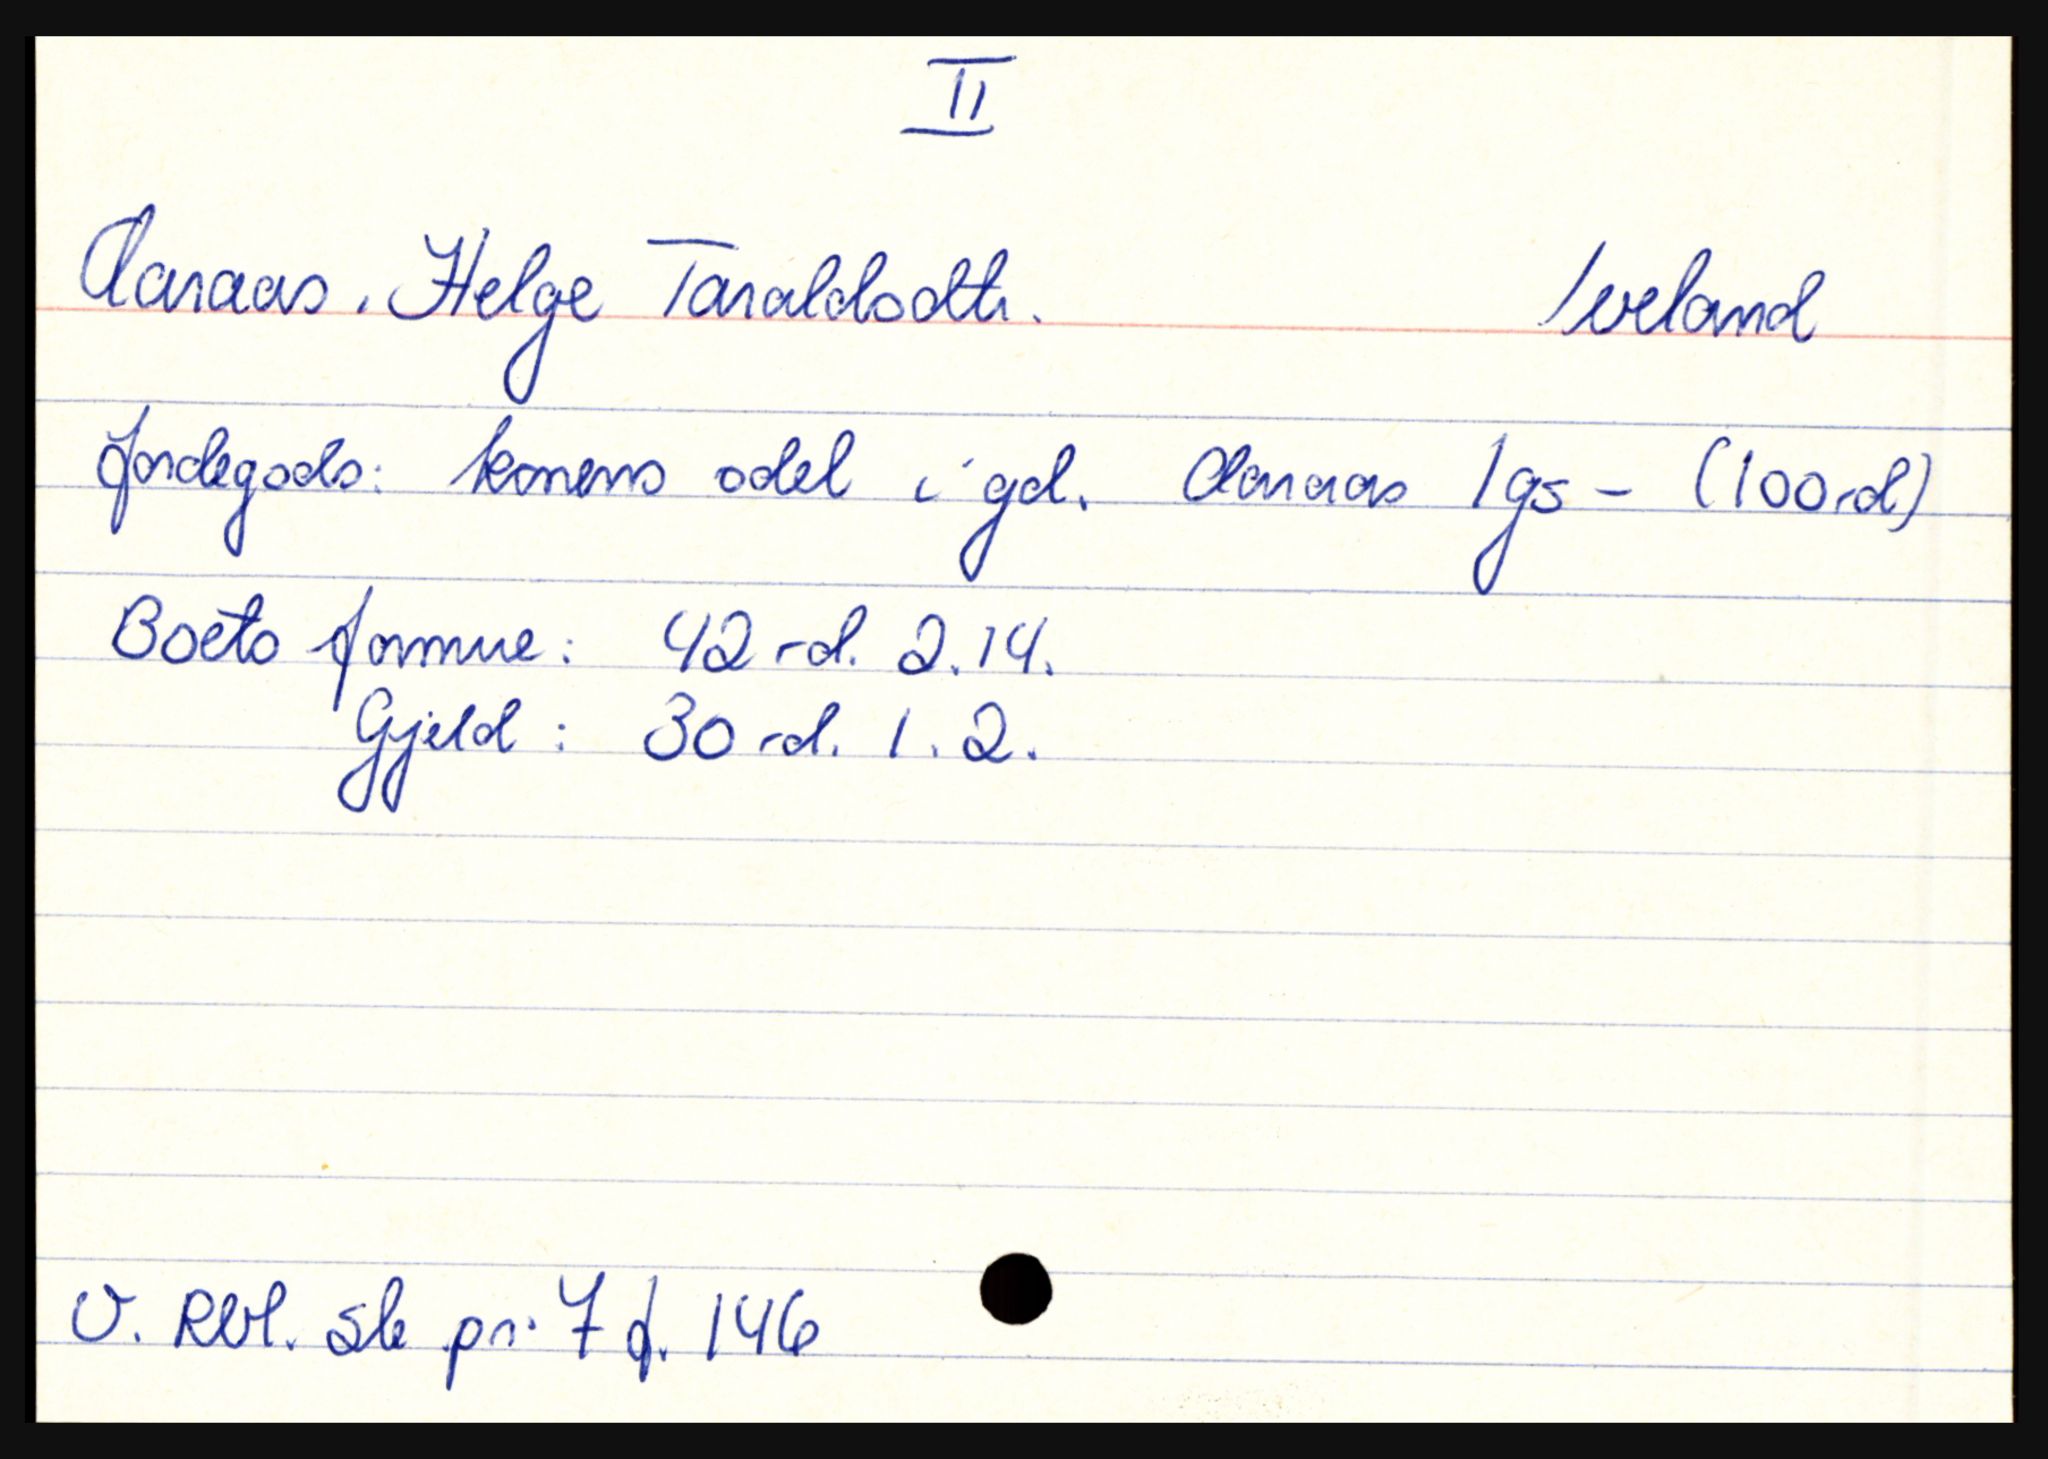 II
Aaraas, Helge Taraldsdtr. Iveland
Jordegods: konens odel i gd. Aaraas 1 gs - (100 rd)
Boets formue: 42 rd. 2. 14.
Gjeld: 30 rd. 1. 2.
V. Rbl. sk pr. 7 f. 146